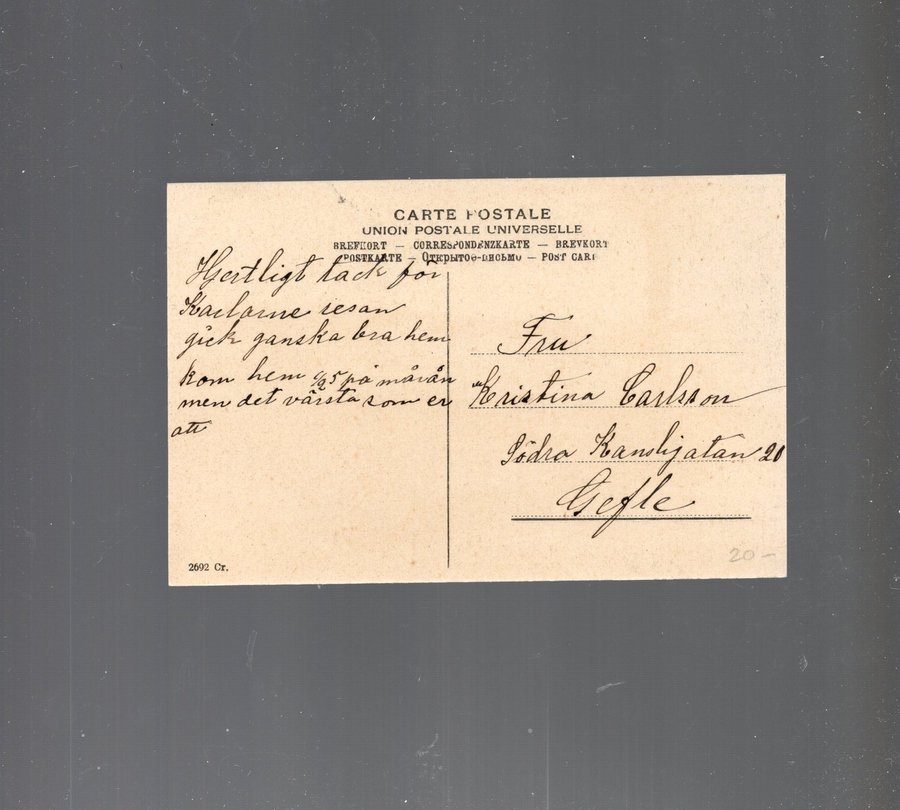 CARTE POSTALE
UNION POSTALE UNIVERSELLE
BREFKORT — CORRESPONDENZKARTE — BREVKORT
POSTKARTE — Открытое-письмо — POST CARD
Hertligt tack för
Karlarne resan
gick ganska bra hem
kom hem 1/2 5 på mårån
men det värsta som er
att
Fru
Kristina Carlsson
Södra Kansligatan 20
Gefle
2692 Cr.
20 —